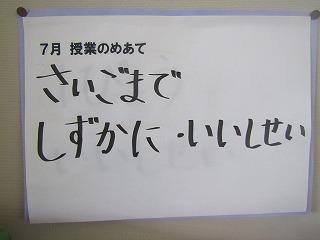 7月 授業のめあて
さいごまで
しずかに・いいしせい